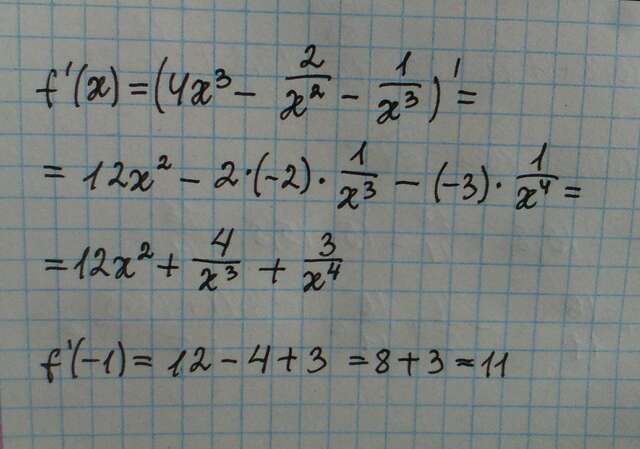 f'(x) = (4x³ − 2/x² − 1/x³)' =
= 12x² − 2·(−2)·1/x³ − (−3)·1/x⁴ =
= 12x² + 4/x³ + 3/x⁴
f'(−1) = 12 − 4 + 3 = 8 + 3 = 11